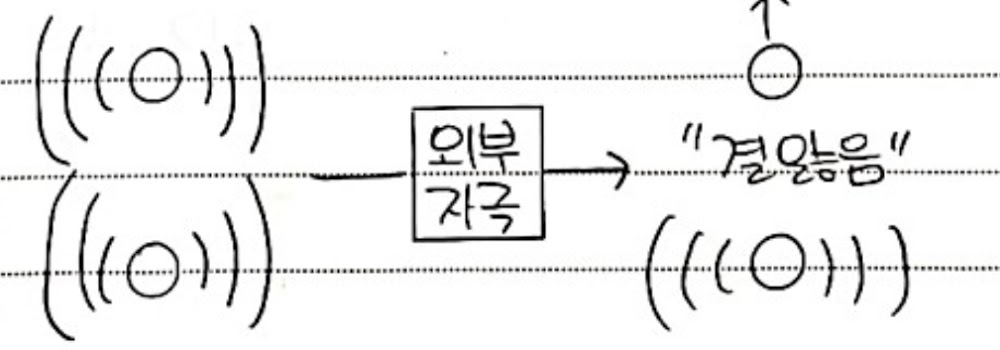 외부
자극
"결앓음"